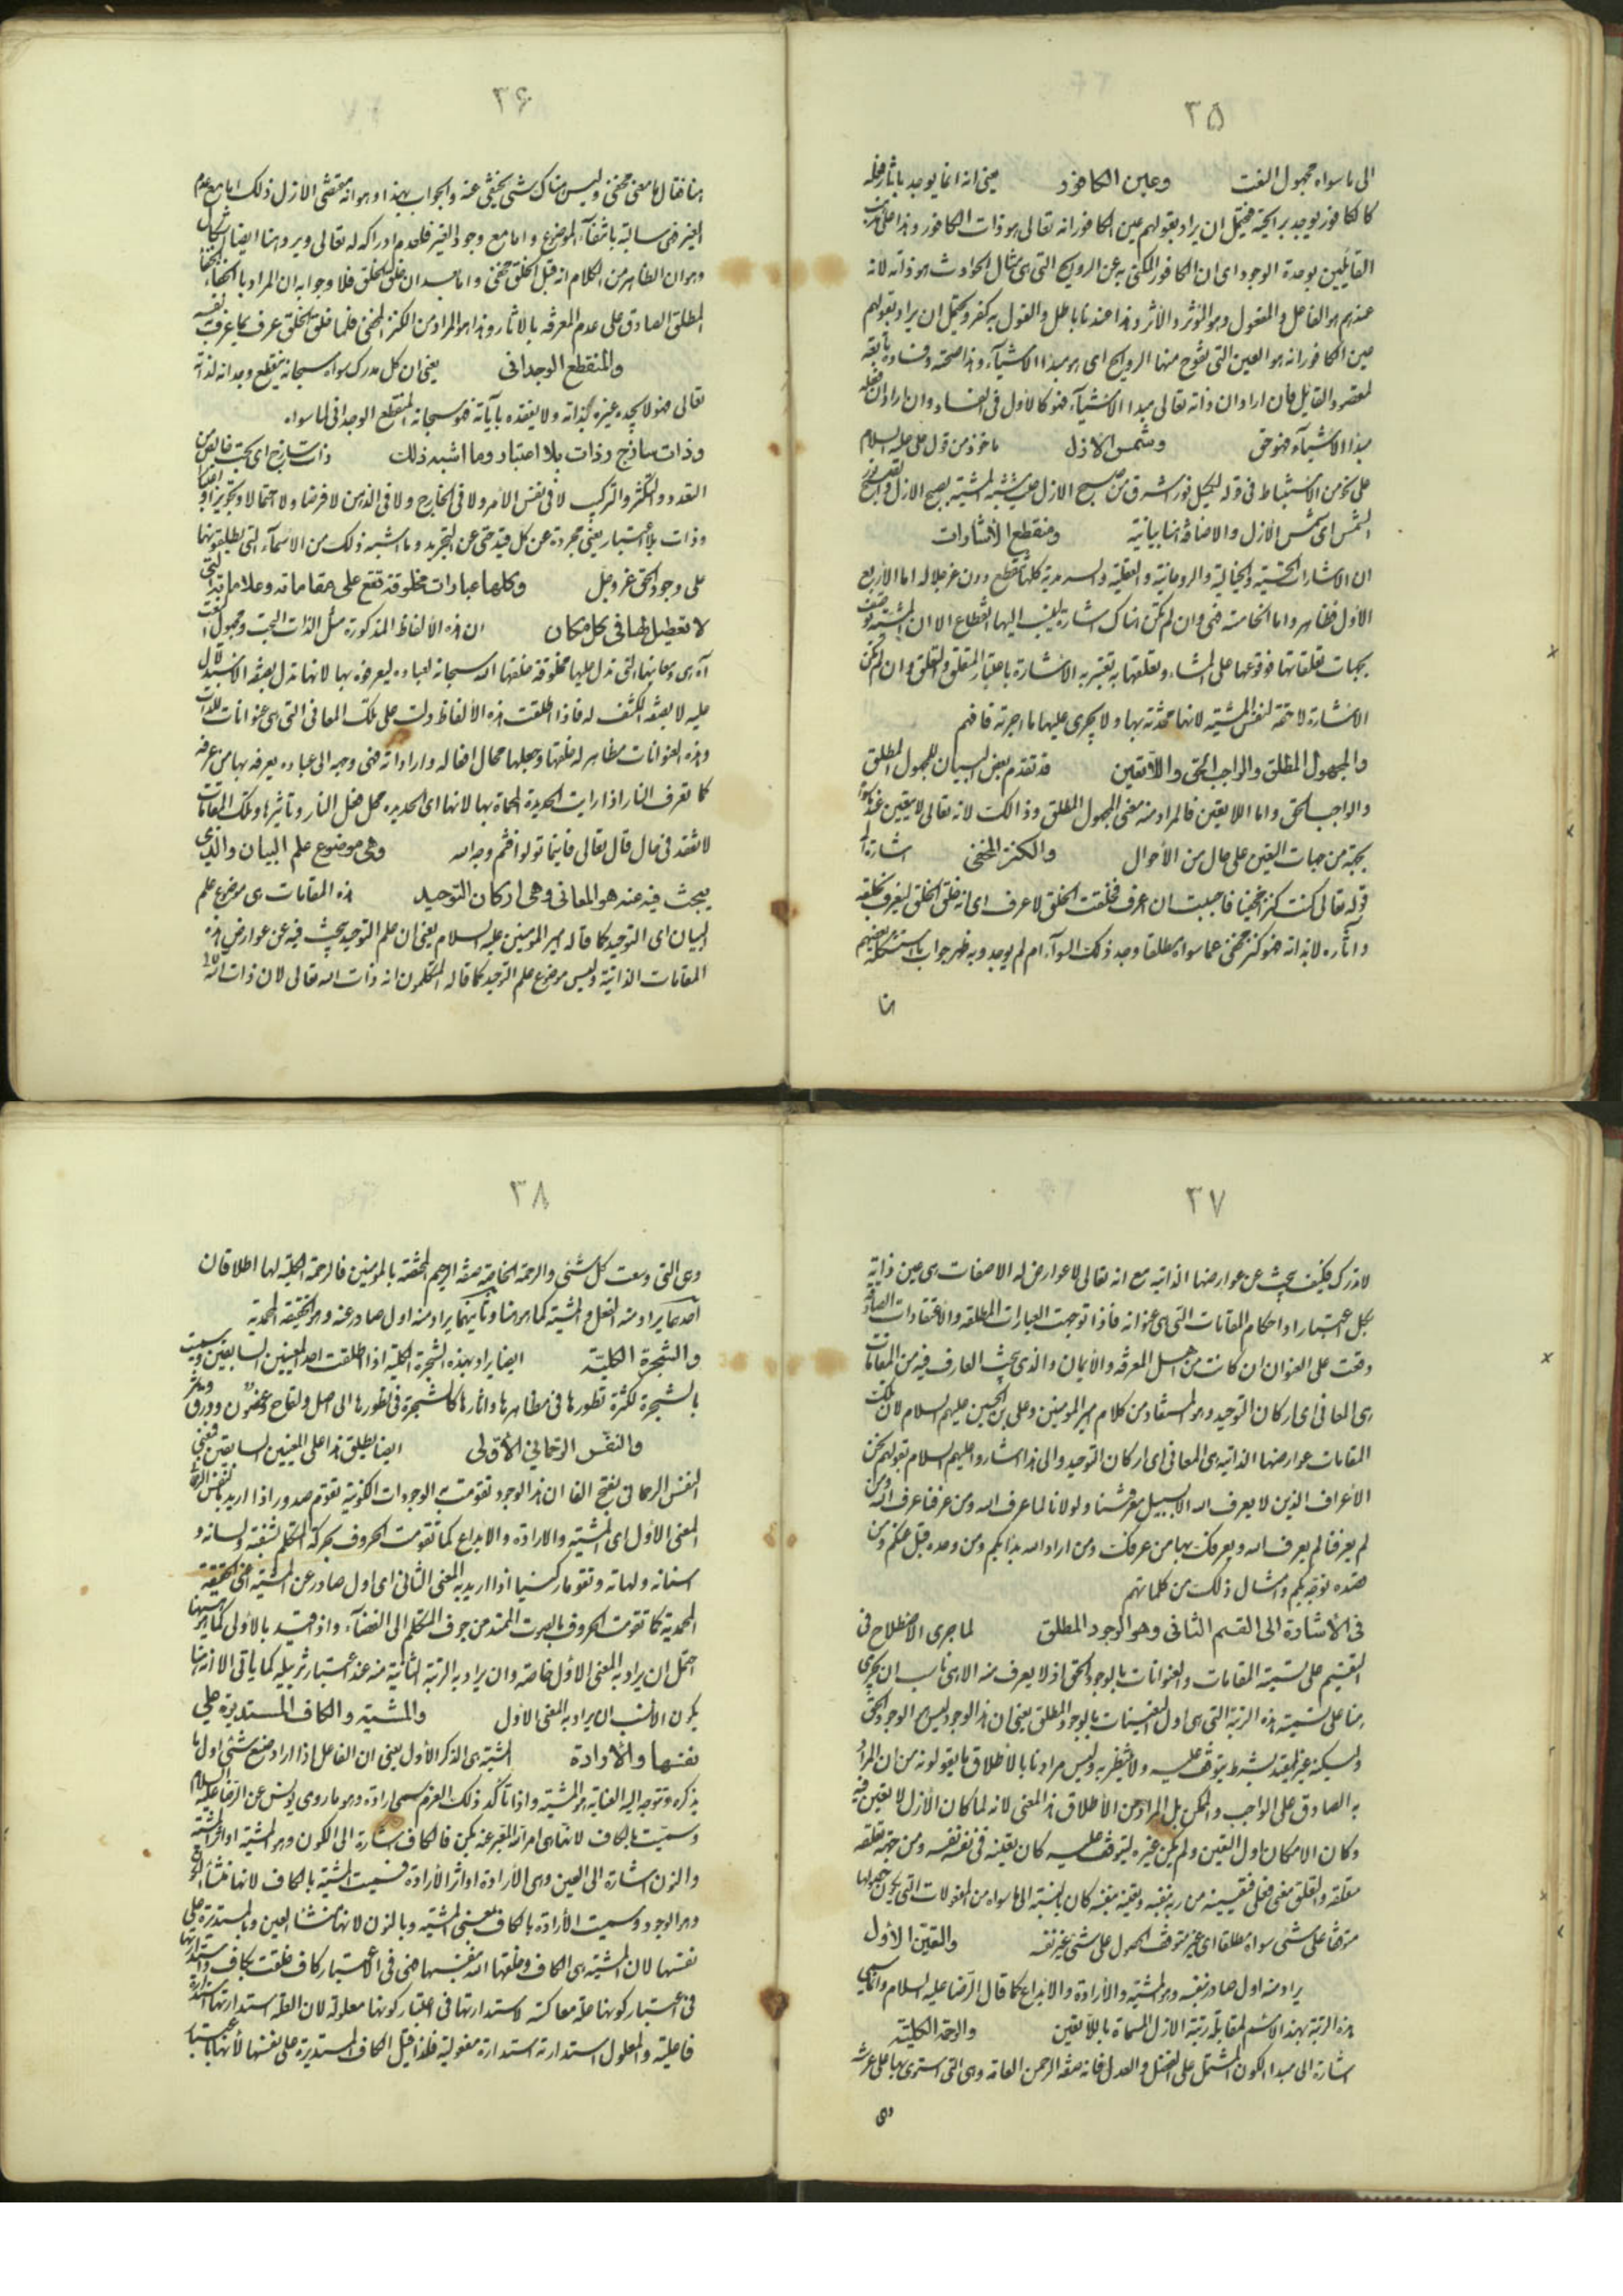 ٣٥
الى ما سواه مجهول النعت وعين الكافور يعنى انه انما يوجد باثار فعله
كالكافور يوجد برائحته فيحتمل ان يراد بقولهم عين الكافور انه تعالى هو ذات الكافور وهذا على
القائلين بوحدة الوجود اى ان الكافور المكنى به عن الروايح التى هى مثال الحوادث هو ذاته لانه
عندهم هو الفاعل والمفعول وهو المؤثر والأثر وهذا عندنا باطل والقول به كفر ويحتمل ان يراد بقولهم
عين الكافور انه هو العين التى تفوح منها الروايح اى هو مبدا الاشيآء وهذا صحته وفساده
لمقصد القائل فان اراد ان ذاته تعالى مبدا الاشيآء فهو كالأول فى الفساد وان اراد ان فعله
مبدا الاشيآء فهو حق وشمس الأزل ماخوذ من قول على عليه السلام
على نحو من الاستنباط فى قوله لكميل نور اشرق من صبح الازل
الشمس اى شمس الأزل والاضافة انها بيانية ومنقطع الاشارات
ان الاشارات الحسية والخيالية والروحانية والعقلية والسرمدية كلها تنقطع دون عز جلاله اما الأربع
الأول فظاهر واما الخامسة فهى وان لم تكن هناك اشارة ينسب اليها انقطاع الا ان المشية
بجهات تعلقاتها فوقوعها على المشاء وتعلقها به تعتبر به الاشارة باعتبار المتعلق والتعلق وان لم تكن
الاشارة لاحقة لنفس المشية لانها محدثة بها ولا يجرى عليها ما اجرته فافهم
والمجهول المطلق والواجب الحق واللاتعين قد تقدم بعض البيان للمجهول المطلق
والواجب الحق واما اللاتعين فالمراد منه معنى المجهول المطلق وذالك لانه تعالى لا يتعين عند
بجهة من جهات التعين على حال من الأحوال والكنز المخفى اشارة الى
قوله تعالى كنت كنزا مخفيا فاحببت ان اعرف فخلقت الخلق لاعرف اى انه خلق الخلق ليعرف بخلقه
واثاره لا بذاته فهو كنز مخفى عما سواه مطلقا وجد ذلك السوآء ام لم يوجد وبه ظهر جواب ما استشكله بعضهم
هنا
٣۶
هنا فقال ما معنى مخفى وليس هناك شىء يختفى عنه والجواب بهذا وهو انه مقتضى الازل ذلك اما مع عدم
الغير فهى سالبة بانتفآء الموضوع واما مع وجود الغير فلعدم ادراكه له تعالى ويرد هنا ايضا اشكال
وهو ان الظاهر من الكلام انه قبل الخلق مخفى واما بعد ان خلق الخلق فلا وجوابه ان المراد بالخفاء
المطلق الصادق على عدم المعرفة بالاثار وهذا هو المراد من الكنز المخفى فلما خلق الخلق عرف بما عرف نفسه
والمنقطع الوجدانى يعنى ان كل مدرك سواه سبحانه ينقطع وجدانه لذاته
تعالى فهو لا يجده غيره بذاته ولا يفقده بآياته فهو سبحانه المنقطع الوجدانى لما سواه
وذات ساذج وذات بلا اعتبار وما اشبه ذلك ذات ساذج اى بحت خالص من
التعدد والتكثر والتركيب لا فى نفس الأمر ولا فى الخارج ولا فى الذهن لا فرضا ولا احتمالا وتجويزا
وذات بلا اعتبار يعنى مجردة عن كل قيد حتى عن التجريد وما اشبه ذلك من الاسمآء التى يطلقونها
على وجود الحق عز وجل وكلها عبادات مخلوقة تقع على مقاماته وعلاماته التى
لا تعطيل لها فى كل مكان ان هذه الألفاظ المذكورة مثل الذات البحت ومجهول النعت
اه هى ومعانيها التى تدل عليها مخلوقة خلقها الله سبحانه لعباده ليعرفوه بها لانها تدل بصفة الاستدلال
عليه لا بصفة الكشف له فاذا اطلقت هذه الألفاظ دلت على تلك المعانى التى هى عنوانات للذات
وهذه العنوانات مظاهر له خلقها وجعلها محال افعاله واراداته فهى وجهه الى عباده يعرفه بها من عرفه
كما تعرف النار اذا رايت الحديدة المحماة بها لانها اى الحديدة محل فعل النار وتاثيرها وتلك المقامات
لا تفقد فى حال قال تعالى فاينما تولوا فثم وجه الله وهى موضوع علم البيان والذى
يبحث فيه عنه هو المعانى وهى اركان التوحيد هذه المقامات هى موضوع علم
البيان اى التوحيد كما قاله امير المؤمنين عليه السلام يعنى ان علم التوحيد يبحث فيه عن عوارض هذه
المقامات الذاتية وليس موضوع علم التوحيد كما قاله المتكلمون انه ذات الله تعالى لان ذات الله لا
٣٧
لا تدرك فكيف يبحث عن عوارضها الذاتية مع انه تعالى لا عوارض له الا صفات هى عين ذاته
بكل اعتبار او احكام المقامات التى هى عنوانه فاذا توجهت العبارات المطلقة والاعتقادات الصادقة
وقعت على العنوان ان كانت من اهل المعرفة والأيمان والذى يبحث العارف فيه من المقامات
هى المعانى اى اركان التوحيد وهو المستفاد من كلام امير المؤمنين وعلى بن الحسين عليهم السلام لان تلك
المقامات عوارضها الذاتية هى المعانى اى اركان التوحيد والى هذا اشاروا عليهم السلام بقولهم نحن
الأعراف الذين لا يعرف الله الا بسبيل معرفتنا ولولانا لما عرف الله ومن عرفنا عرف الله ومن
لم يعرفنا لم يعرف الله وبعرفك بها من عرفك ومن اراد الله بدا بكم ومن وحده قبل عنكم ومن
قصده توجه بكم وامثال ذلك من كلماتهم
فى الأشارة الى القسم الثانى وهو الوجود المطلق لما جرى الاصطلاح فى
التقسيم على تسمية المقامات والعنوانات بالوجود الحق اذ لا يعرف منه الا هى ناسب ان يجرى
هنا على تسمية هذه الرتبة التى هى اول التعينات بالوجود المطلق يعنى ان هذا الوجود ليس هو الوجود الحق
ولكنه غير مقيد بشرط يتوقف عليه ولا ينتظر به وليس مرادنا بالأطلاق ما يقولونه من ان المراد
به الصادق على الواجب والممكن بل المراد من الأطلاق هذا المعنى لانه لما كان الأزل لا تعين فيه
وكان الامكان اول التعين ولم يكن غيره ليتوقف عليه كان تعينه فى نفسه بنفسه ومن جهة تعلقه
متعلقه والتعلق معنى فعلى فتعينه من ربه بنفسه وبقيته بنفسه كان بالنسبة الى ما سواه من المفعولات التى يكون
متوقفا على شىء سواه مطلقا اى غير متوقف الحصول على شىء غير نفسه والتعين الأول
يراد منه اول صادر بنفسه وهو المشية والأرادة والابداع كما قال الرضا عليه السلام وانما سمى
هذه الرتبة بهذا الاسم لمقابلة رتبة الازل المسماة باللاتعين والرحمة الكلية
اشارة الى مبدا الكون المشتمل على الفضل والعدل فانه صفة الرحمن العامة وهى التى استوى بها على عرشه
وهى
٣٨
وهى التى وسعت كل شىء والرحمة الخاصة صفة الرحيم المختصة بالمؤمنين فالرحمة الكلية لها اطلاقان
احدهما يراد منه الفعل والمشية كما هو هنا وثانيهما يراد منه اول صادر عنه وهو الحقيقة المحمدية
والشجرة الكلية ايضا يراد بهذه الشجرة الكلية اذا اطلقت احد المعنيين السابقين وسميت
بالشجرة لكثرة تطورها فى مظاهرها واثارها كالشجرة فى تطورها الى اصل ولقاح وغصون وورق وثمر
والنفس الرحمانى الأولى ايضا يطلق هذا على المعنيين السابقين فمعنى
النفس الرحمانى بفتح الفا ان هذا الوجود تقومت به الوجودات الكونية تقوم صدور اذا اريد بالنفس الرحمانى
المعنى الأول اى المشية والارادة والابداع كما تقومت الحروف بحركة المتكلم بشفته ولسانه و
اسنانه ولهاته وتقوما ركنيا اذا اريد به المعنى الثانى اى اول صادر عن المشية اعنى الحقيقة
المحمدية كما تقومت الحروف بالصوت الممتد من جوف المتكلم الى الفضآء واذ قيد بالأولى كما هو هيهنا
احتمل ان يراد به المعنى الأول خاصة وان يراد به الرتبة الثانية منه عند اعتبار تنزيله كما ياتى الا ان هنا
يكون الأنسب ان يراد به المعنى الأول والمشية والكاف المستديرة على
نفسها والأرادة المشية هى الذكر الأول يعنى ان الفاعل اذا اراد صنع شىء اول ما
يذكره وتتوجه اليه العناية هو المشية واذا تأكد ذلك العزم سمى ارادة وهو ما روى يونس عن الرضا عليه السلام
وسميت بالكاف لانها هى امر الله المعبر عنه بكن فالكاف اشارة الى الكون وهو المشية او اثر المشية
والنون اشارة الى العين وهى الأرادة او اثر الأرادة فسميت المشية بالكاف لانها منشأ
وهو الوجود وسميت الأرادة بالكاف بمعنى المشية وبالنون لانها منشأ العين وبالمستديرة على
نفسها لان المشية هى الكاف وخلقها الله بنفسها فهى فى الاعتبار كاف خلقت بكاف
فى اعتبار كونها علة معاكسة لاستدارتها فى اعتبار كونها معلولة لان العلة استدارتها استدارة
فاعلية والمعلول استدارته استدارة مفعولية فلذا قيل الكاف المستديرة على نفسها لأنها باعتبار